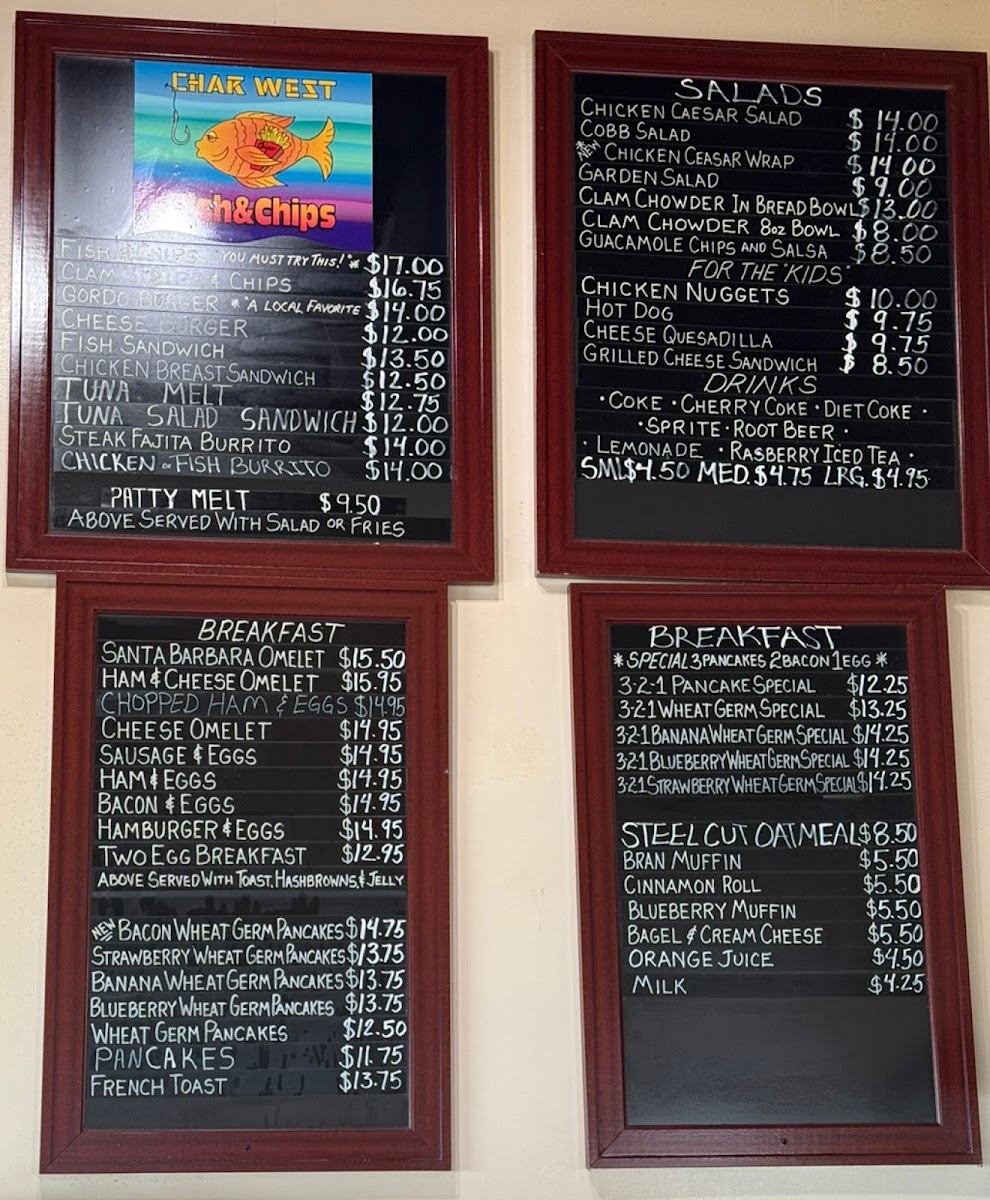 CHAR WEST
Fish&Chips
FISH & CHIPS "YOU MUST TRY THIS!"* $17.00
CLAM STRIPS & CHIPS $16.75
GORDO BURGER *"A LOCAL FAVORITE $14.00
CHEESE BURGER $12.00
FISH SANDWICH $13.50
CHICKEN BREAST SANDWICH $12.50
TUNA MELT $12.75
TUNA SALAD SANDWICH $12.00
STEAK FAJITA BURRITO $14.00
CHICKEN or FISH BURRITO $14.00
PATTY MELT $9.50
ABOVE SERVED WITH SALAD OR FRIES
SALADS
CHICKEN CAESAR SALAD $14.00
COBB SALAD $14.00
*NEW CHICKEN CEASAR WRAP $14.00
GARDEN SALAD $9.00
CLAM CHOWDER IN BREAD BOWL $13.00
CLAM CHOWDER 8oz BOWL $8.00
GUACAMOLE CHIPS AND SALSA $8.50
FOR THE "KIDS"
CHICKEN NUGGETS $10.00
HOT DOG $9.75
CHEESE QUESADILLA $9.75
GRILLED CHEESE SANDWICH $8.50
DRINKS
• COKE • CHERRY COKE • DIET COKE •
• SPRITE • ROOT BEER •
• LEMONADE • RASBERRY ICED TEA •
SML $4.50 MED. $4.75 LRG. $4.95
BREAKFAST
SANTA BARBARA OMELET $15.50
HAM & CHEESE OMELET $15.95
CHOPPED HAM & EGGS $14.95
CHEESE OMELET $14.95
SAUSAGE & EGGS $14.95
HAM & EGGS $14.95
BACON & EGGS $14.95
HAMBURGER & EGGS $14.95
TWO EGG BREAKFAST $12.95
ABOVE SERVED WITH TOAST, HASHBROWNS, & JELLY
NEW BACON WHEAT GERM PANCAKES $14.75
STRAWBERRY WHEAT GERM PANCAKES $13.75
BANANA WHEAT GERM PANCAKES $13.75
BLUEBERRY WHEAT GERM PANCAKES $13.75
WHEAT GERM PANCAKES $12.50
PANCAKES $11.75
FRENCH TOAST $13.75
BREAKFAST
*SPECIAL 3 PANCAKES 2 BACON 1 EGG*
3-2-1 PANCAKE SPECIAL $12.25
3-2-1 WHEAT GERM SPECIAL $13.25
3-2-1 BANANA WHEAT GERM SPECIAL $14.25
3-2-1 BLUEBERRY WHEAT GERM SPECIAL $14.25
3-2-1 STRAWBERRY WHEAT GERM SPECIAL $14.25
STEEL CUT OATMEAL $8.50
BRAN MUFFIN $5.50
CINNAMON ROLL $5.50
BLUEBERRY MUFFIN $5.50
BAGEL & CREAM CHEESE $5.50
ORANGE JUICE $4.50
MILK $4.25